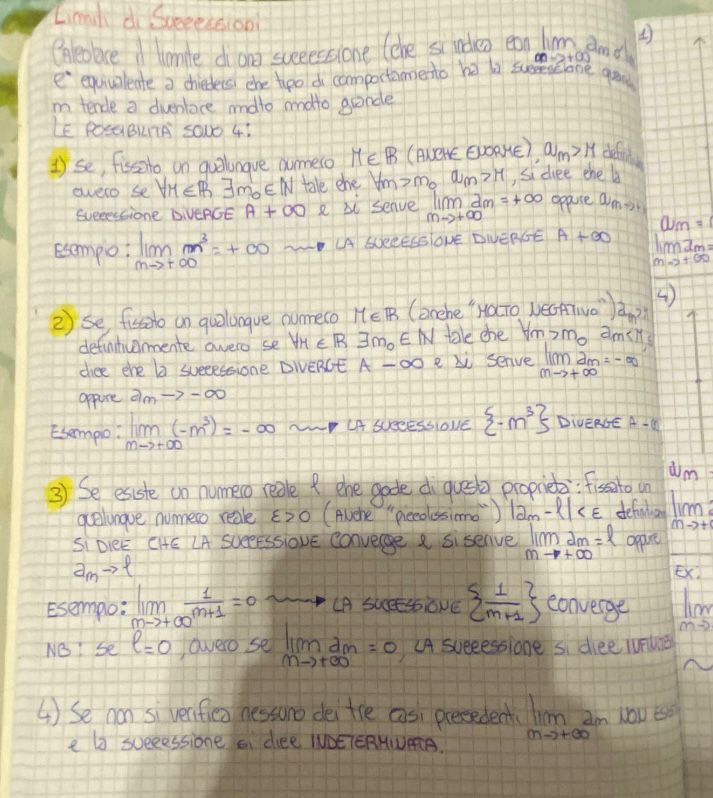 Limiti di Successioni
Calcolare il limite di una successione (che si indica con lim am o
m→+∞
e' equivalente a chiedersi che tipo di comportamento ha la successione quando
m tende a diventare molto molto grande
LE POSSIBILITÀ SONO 4:
1) Se, fissato un qualunque numero M∈ℝ (ANCHE ENORME), am>M
ovvero se ∀M∈ℝ ∃m₀∈ℕ tale che ∀m>m₀ am>M, si dice che la
successione DIVERGE A +∞ e si scrive lim am = +∞ oppure am→+
m→+∞
Esempio: lim m³ = +∞ ⟿ LA SUCCESSIONE DIVERGE A +∞
m→+∞
2) Se, fissato un qualunque numero M∈ℝ (anche "MOLTO NEGATIVO") am>M
definitivamente ovvero se ∀M∈ℝ ∃m₀∈ℕ tale che ∀m>m₀ am<M, s
dice che la successione DIVERGE A -∞ e si scrive lim am = -∞
m→+∞
oppure am → -∞
Esempio: lim (-m³) = -∞ ⟿ LA SUCCESSIONE {-m³} DIVERGE A -∞
m→+∞
3) Se esiste un numero reale ℓ che gode di questa proprietà: fissato un
qualunque numero reale ε>0 (ANCHE "piccolissimo") |am-ℓ|<ε
SI DICE CHE LA SUCCESSIONE converge e si scrive lim am = ℓ oppure
m→+∞
am→ℓ
Esempio: lim 1/(m+1) = 0 ⟿ LA SUCCESSIONE {1/(m+1)} converge
m→+∞
NB: se ℓ=0, ovvero se lim am = 0, LA successione si dice INFINITESIMA
m→+∞
4) Se non si verifica nessuno dei tre casi precedenti, lim am NON ESIS
m→+∞
e la successione si dice INDETERMINATA.
1)
am =
lim am=
m→+∞
4)
am
lim
m→+
Ex:
lim
m→